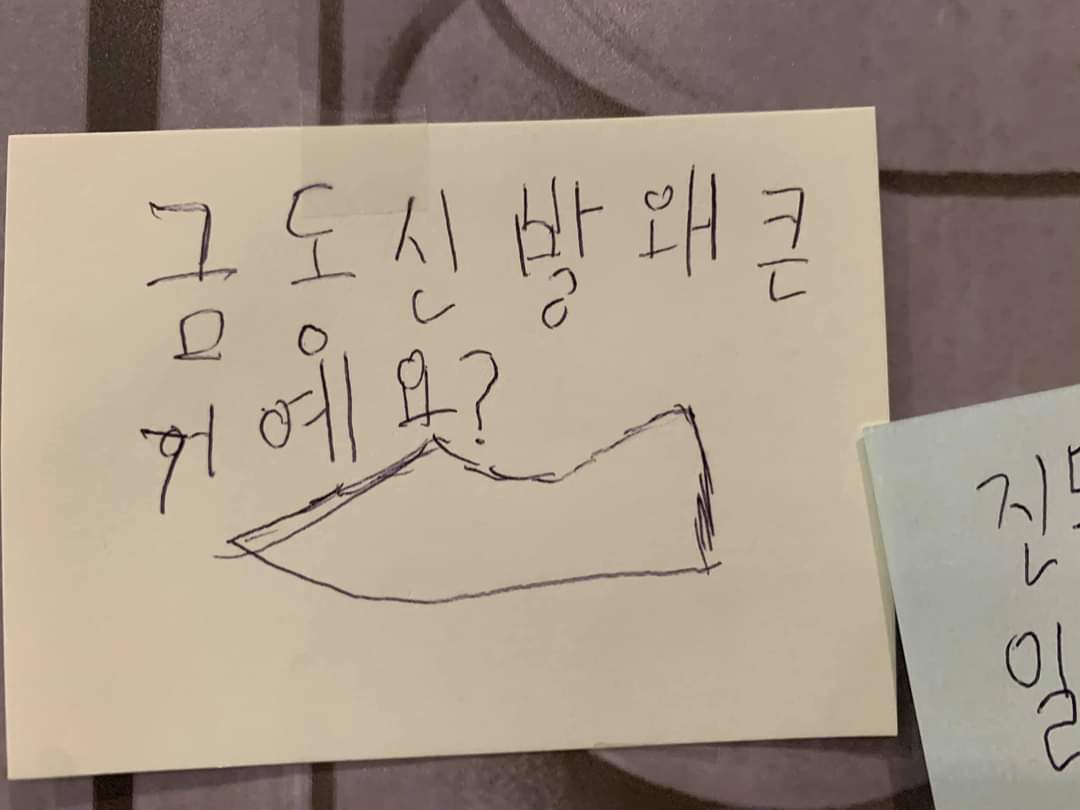 금동신발 왜 큰
거예요?
진
일